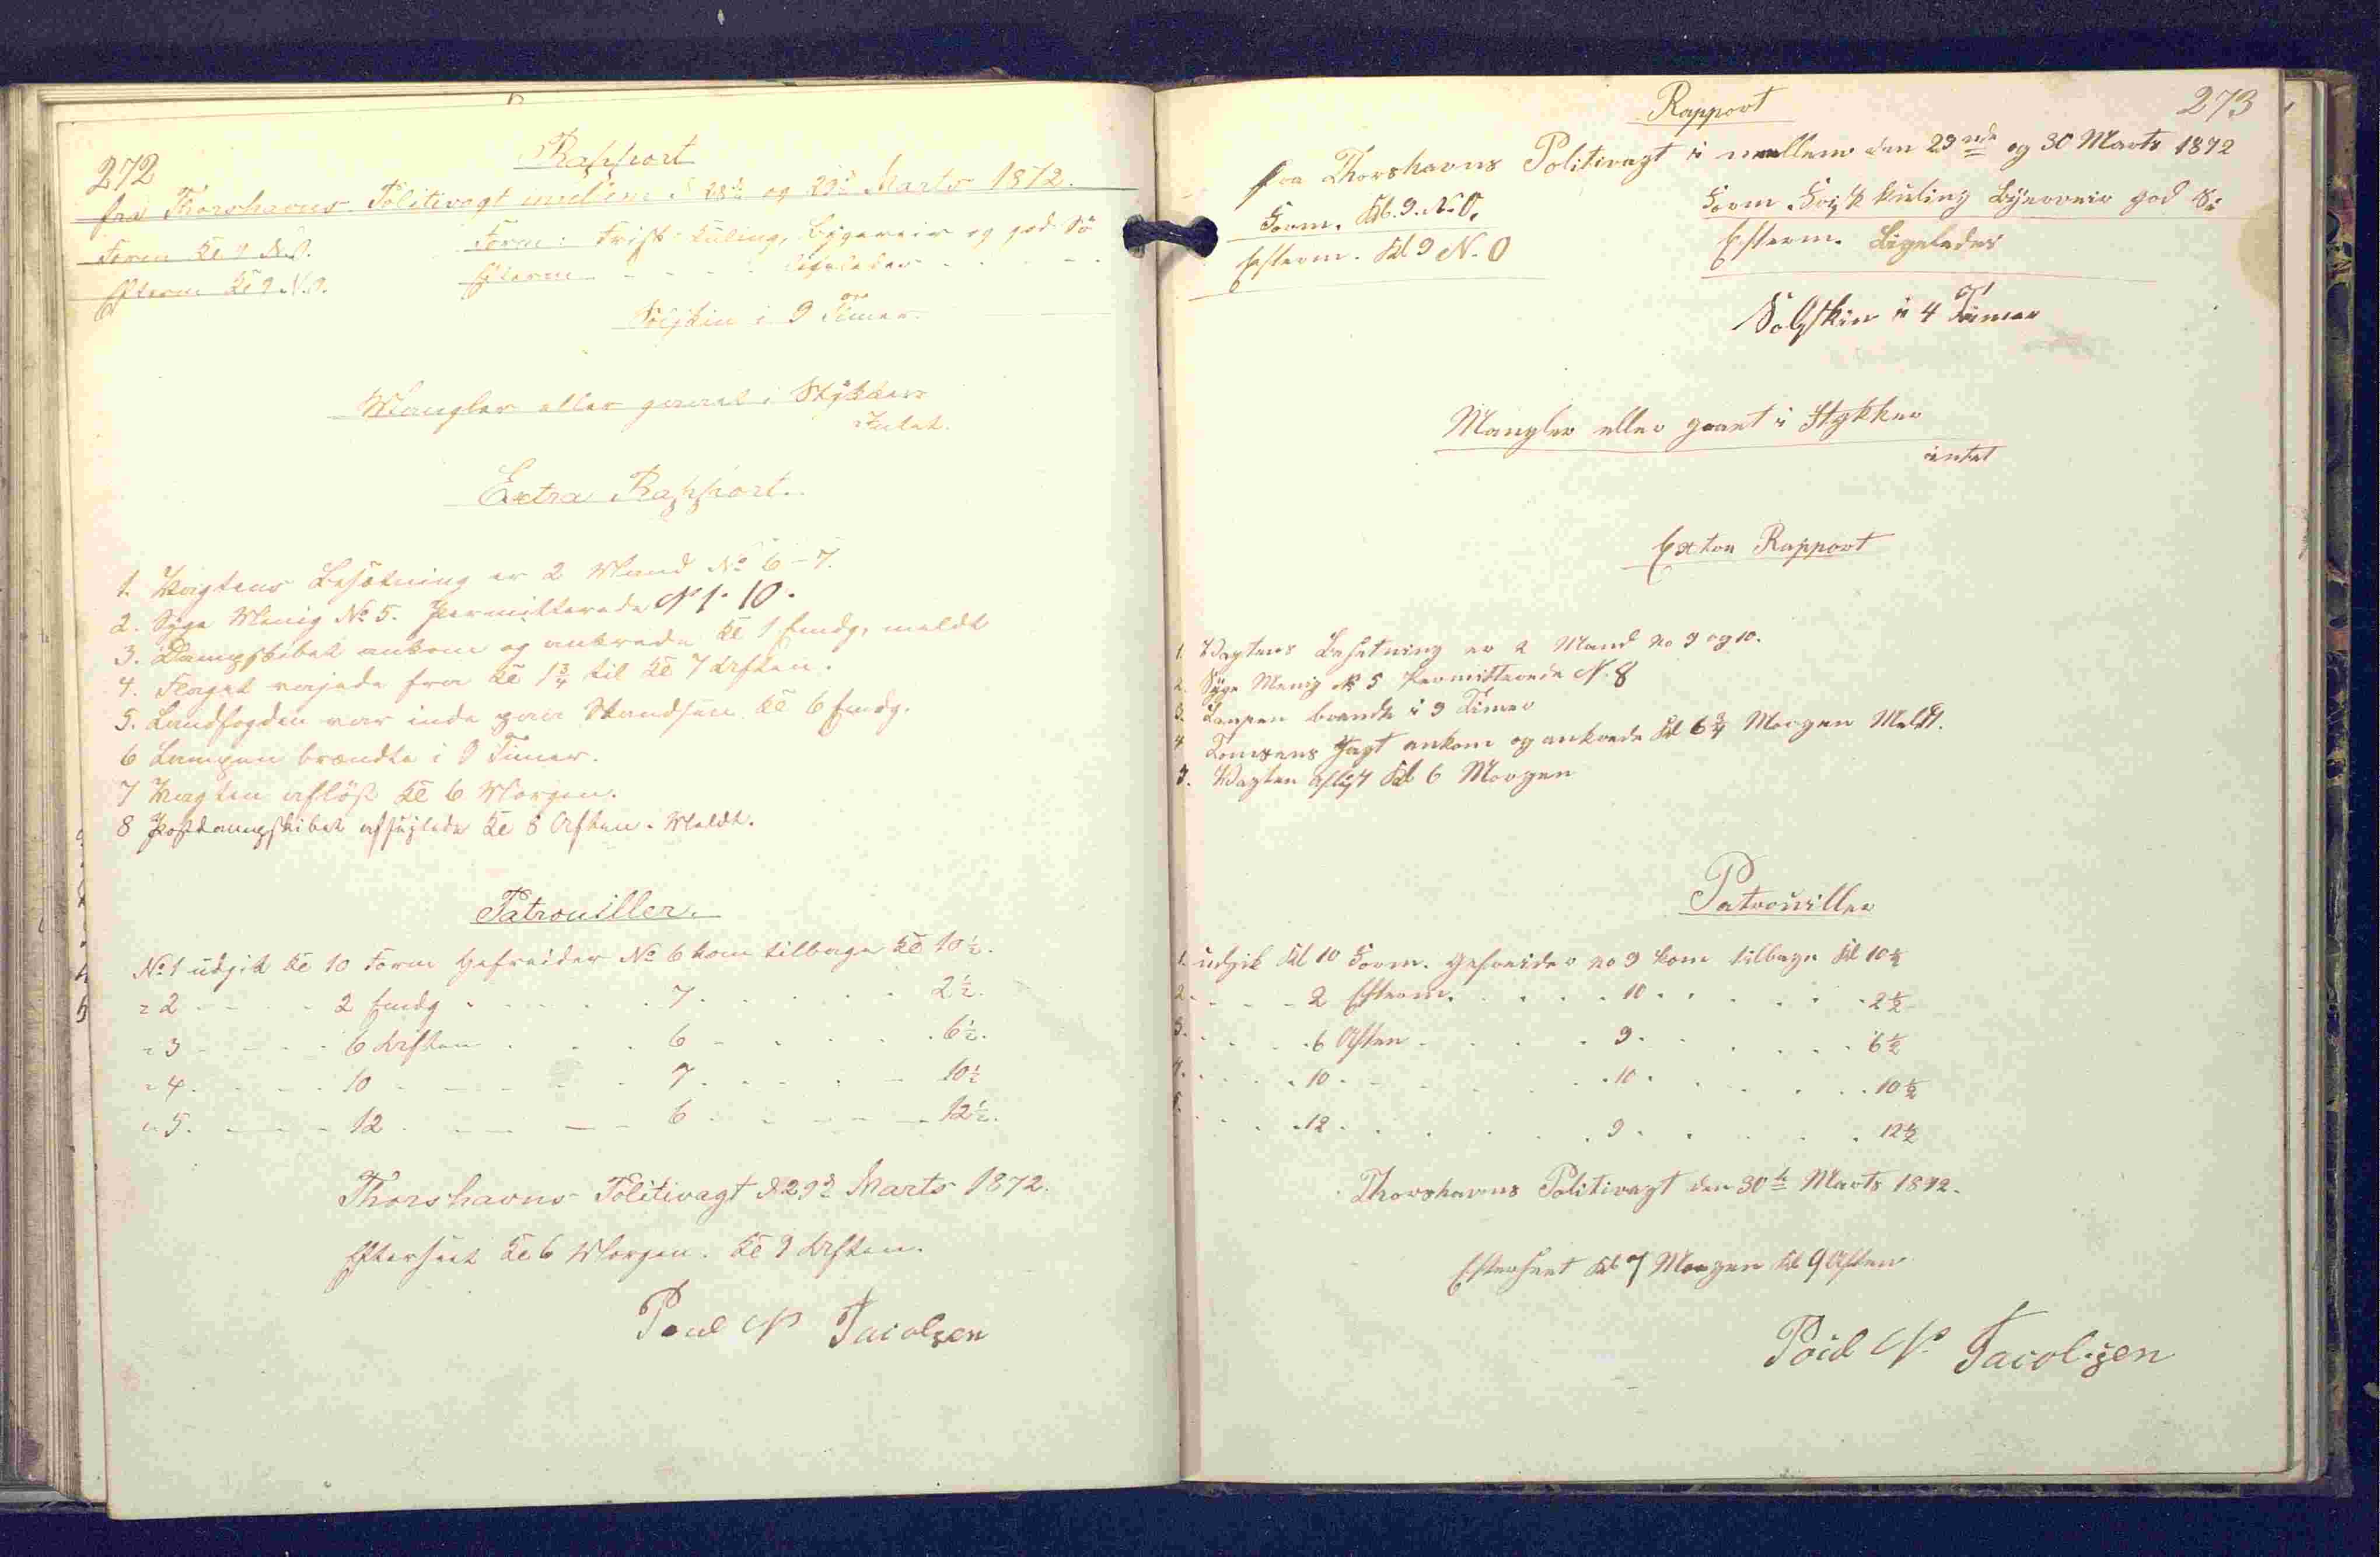 272
Rapport
fra Thorshavns Politivagt imellem d 28de og 29de Marts 1872.
Form Kl 9 N.O. Form: Frisk Kuling, Bygeveir og god Sö
Efterm Kl 9 N.O. Efterm - - - - ligeledes - - - -
Solskin i 9 Timer.
Mangler eller gaaet i Stykker
Intet.
Extra Rapport.
1. Vagtens Besætning er 2 Mand No 6-7.
2. Syge Menig No 5. Permitterede N 1. 10.
3. Dampskibet ankom og ankrede Kl 1 Emdg, meldt
4. Flaget vajede fra Kl 1 3/4 til Kl 7 Aften.
5. Landfogden var inde paa Skandsen Kl 6 Emdg.
6 Lampen brændte i 9 Timer.
7 Vagten aflöst Kl 6 Morgen.
8 Postdampskibet afsejlede Kl 8 Aften. Meldt.
Patrouiller.
No 1 udgik Kl 10 Form Gefreider No 6 kom tilbage Kl 10 1/2.
" 2 - - - - 2 Emdg - - - - 7 - - - - 2 1/2.
" 3 - - - - 6 Aften - - - 6 - - - - 6 1/2.
" 4. - - - - 10 - - - - 7. - - - - 10 1/2
" 5. - - - - 12 - - - - 6 - - - - 12 1/2.
Thorshavns Politivagt d 29de Marts 1872.
Efterseet Kl 6 Morgen. Kl 9 Aften.
Poul N Jacobsen
273
Rapport
fra Thorshavns Politivagt i mellem den 29nde og 30 Marts 1872
Form. Kl. 9. N.O. Form. Frisk Kuling Bygeveir god Sö
Efterm. Kl 9 N.O Efterm. Ligeledes
Solskin i 4 Timer
Mangler eller gaaet i Stykker
intet
Extra Rapport
1. Vagtens Besetning er 2 Mand no 9 og 10.
2. Syge Menig N 5 Permitterede N. 8
3. Lampen brændte i 9 Timer
4 Tomsens Jagt ankom og ankrede Kl 6 3/4 Morgen Meldt.
5. Vagten aflöst Kl 6 Morgen
Patrouiller
1. udgik Kl 10 Form. Gefreider no 9 kom tilbage Kl 10 1/2
2. - - - 2 Efterm. - - - - 10 - - - - 2 1/2
3. - - - 6 Aften - - - - 9. - - - - 6 1/2
4. - - - 10 - - - - 10 - - - - 10 1/2
5. - - - 12 - - - - 9 - - - - 12 1/2
Thorshavns Politivagt den 30te Marts 1872.
Efterseet Kl 7 Morgen Kl 9 Aften
Poul N Jacobsen